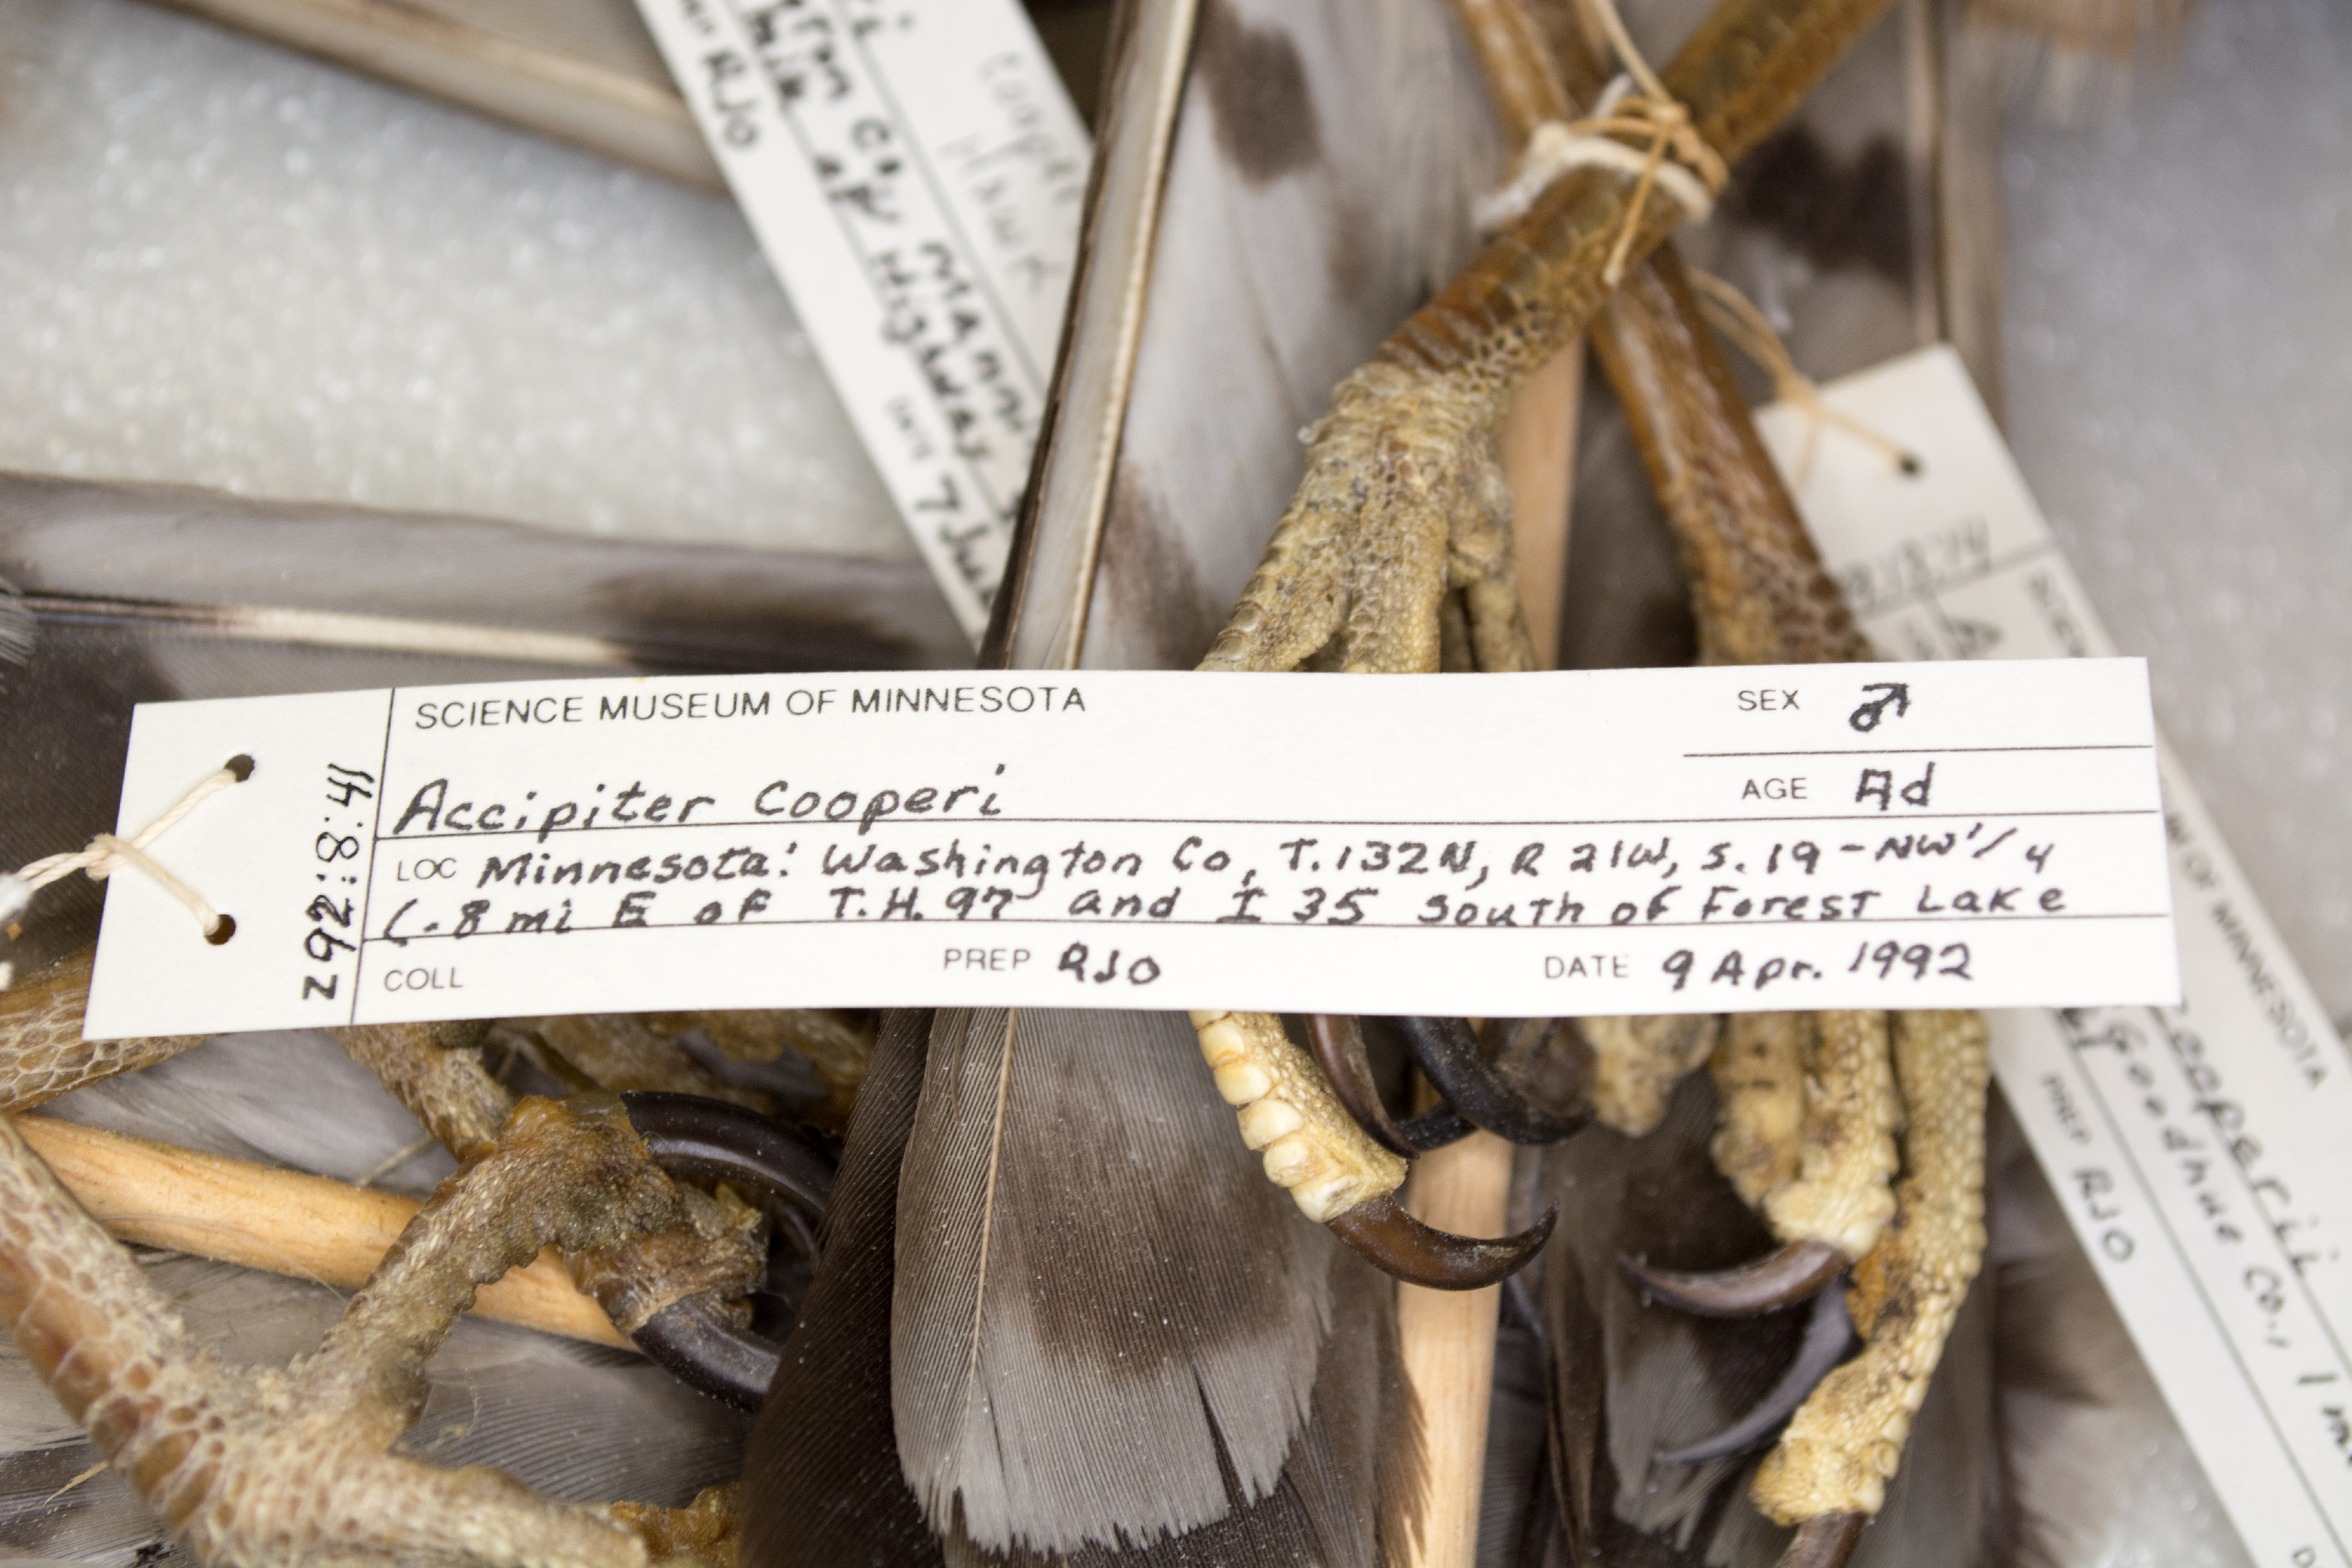 RJO
Co, Minn
Highway
7 Ju
SCIENCE MUSEUM OF MINNESOTA
SEX ♂
Z92:8:41
Accipiter Cooperi
AGE Ad
LOC Minnesota: Washington Co, T.132N, R 21W, S.19-NW 1/4
(.8 mi E of T.H. 97 and I 35 South of Forest Lake
COLL PREP RJO DATE 9 Apr. 1992
OF MINNESOTA
cooperii
Goodhue Co., 1 m
PREP RJO